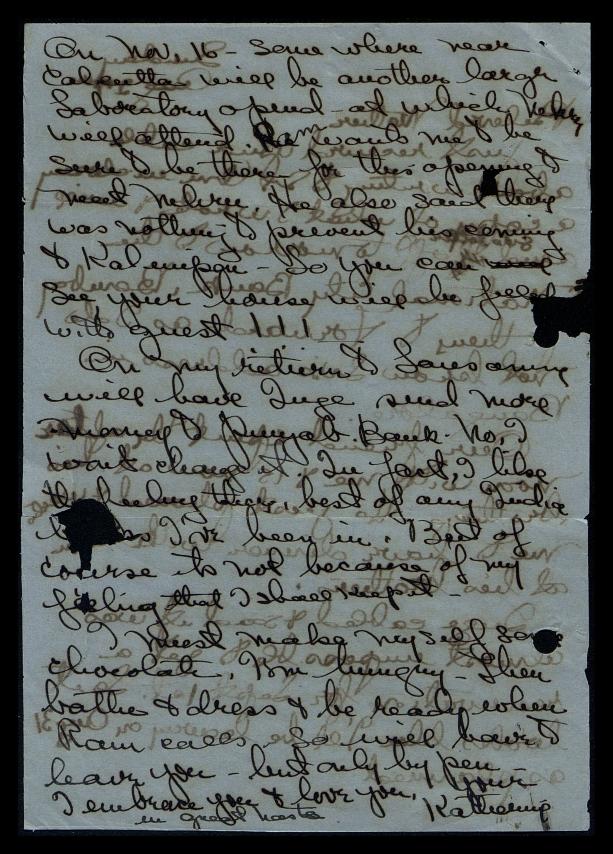 On Nov. 16 - some where near
Calcutta will be another large
Laboratory opend - at which Nehru
will attend. Ram wants me to be
sure to be there for this opening &
meet Nehru. He also said there
was nothing to prevent his coming
to Kalimpong - So you can
see your house will be filled
with guest !!!
On my return to Lausanne
will have Inge send more
money to Punjab Bank. No, I
wont change it. In fact, I like
the feeling there, best of any India
I've been in. But of
course its not because of my
feeling that I shall keep it -
I must make myself some
chocolate, I'm hungry - Then
bathe & dress & be ready when
Ram calls. So will have to
leave you - but only by pen -
your
I embrace you & love you, Katherine
in great haste